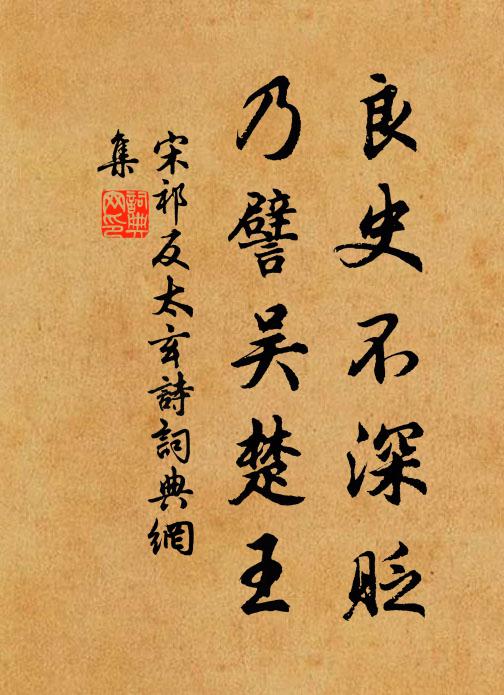 良史不深貶
乃譬吴楚王
宋祁反太玄詩詞典網
集
詞典網印